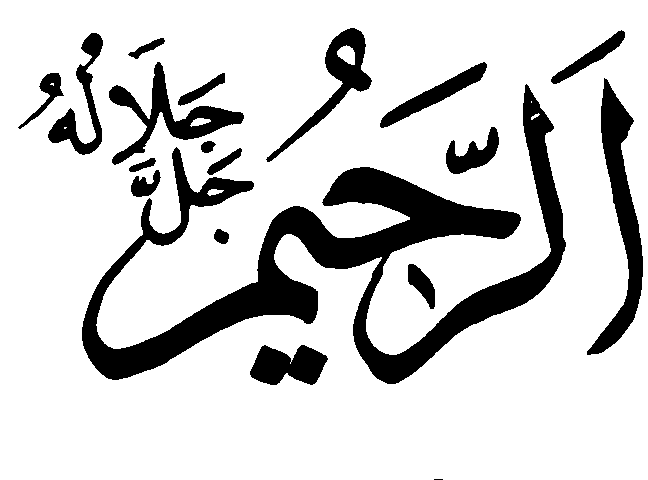 اَلرَّحِيمُ
جَلَّ جَلَالُهُ